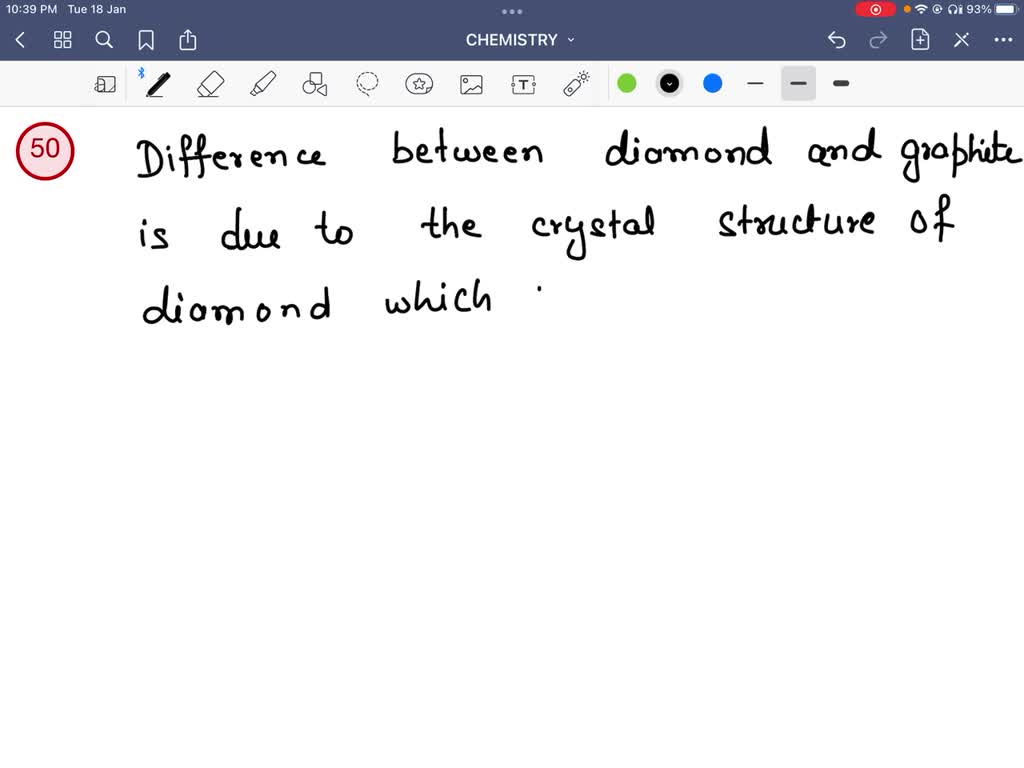 10:39 PM Tue 18 Jan 93%
CHEMISTRY
T
50
Difference between diamond and graphite
is due to the crystal structure of
diamond which